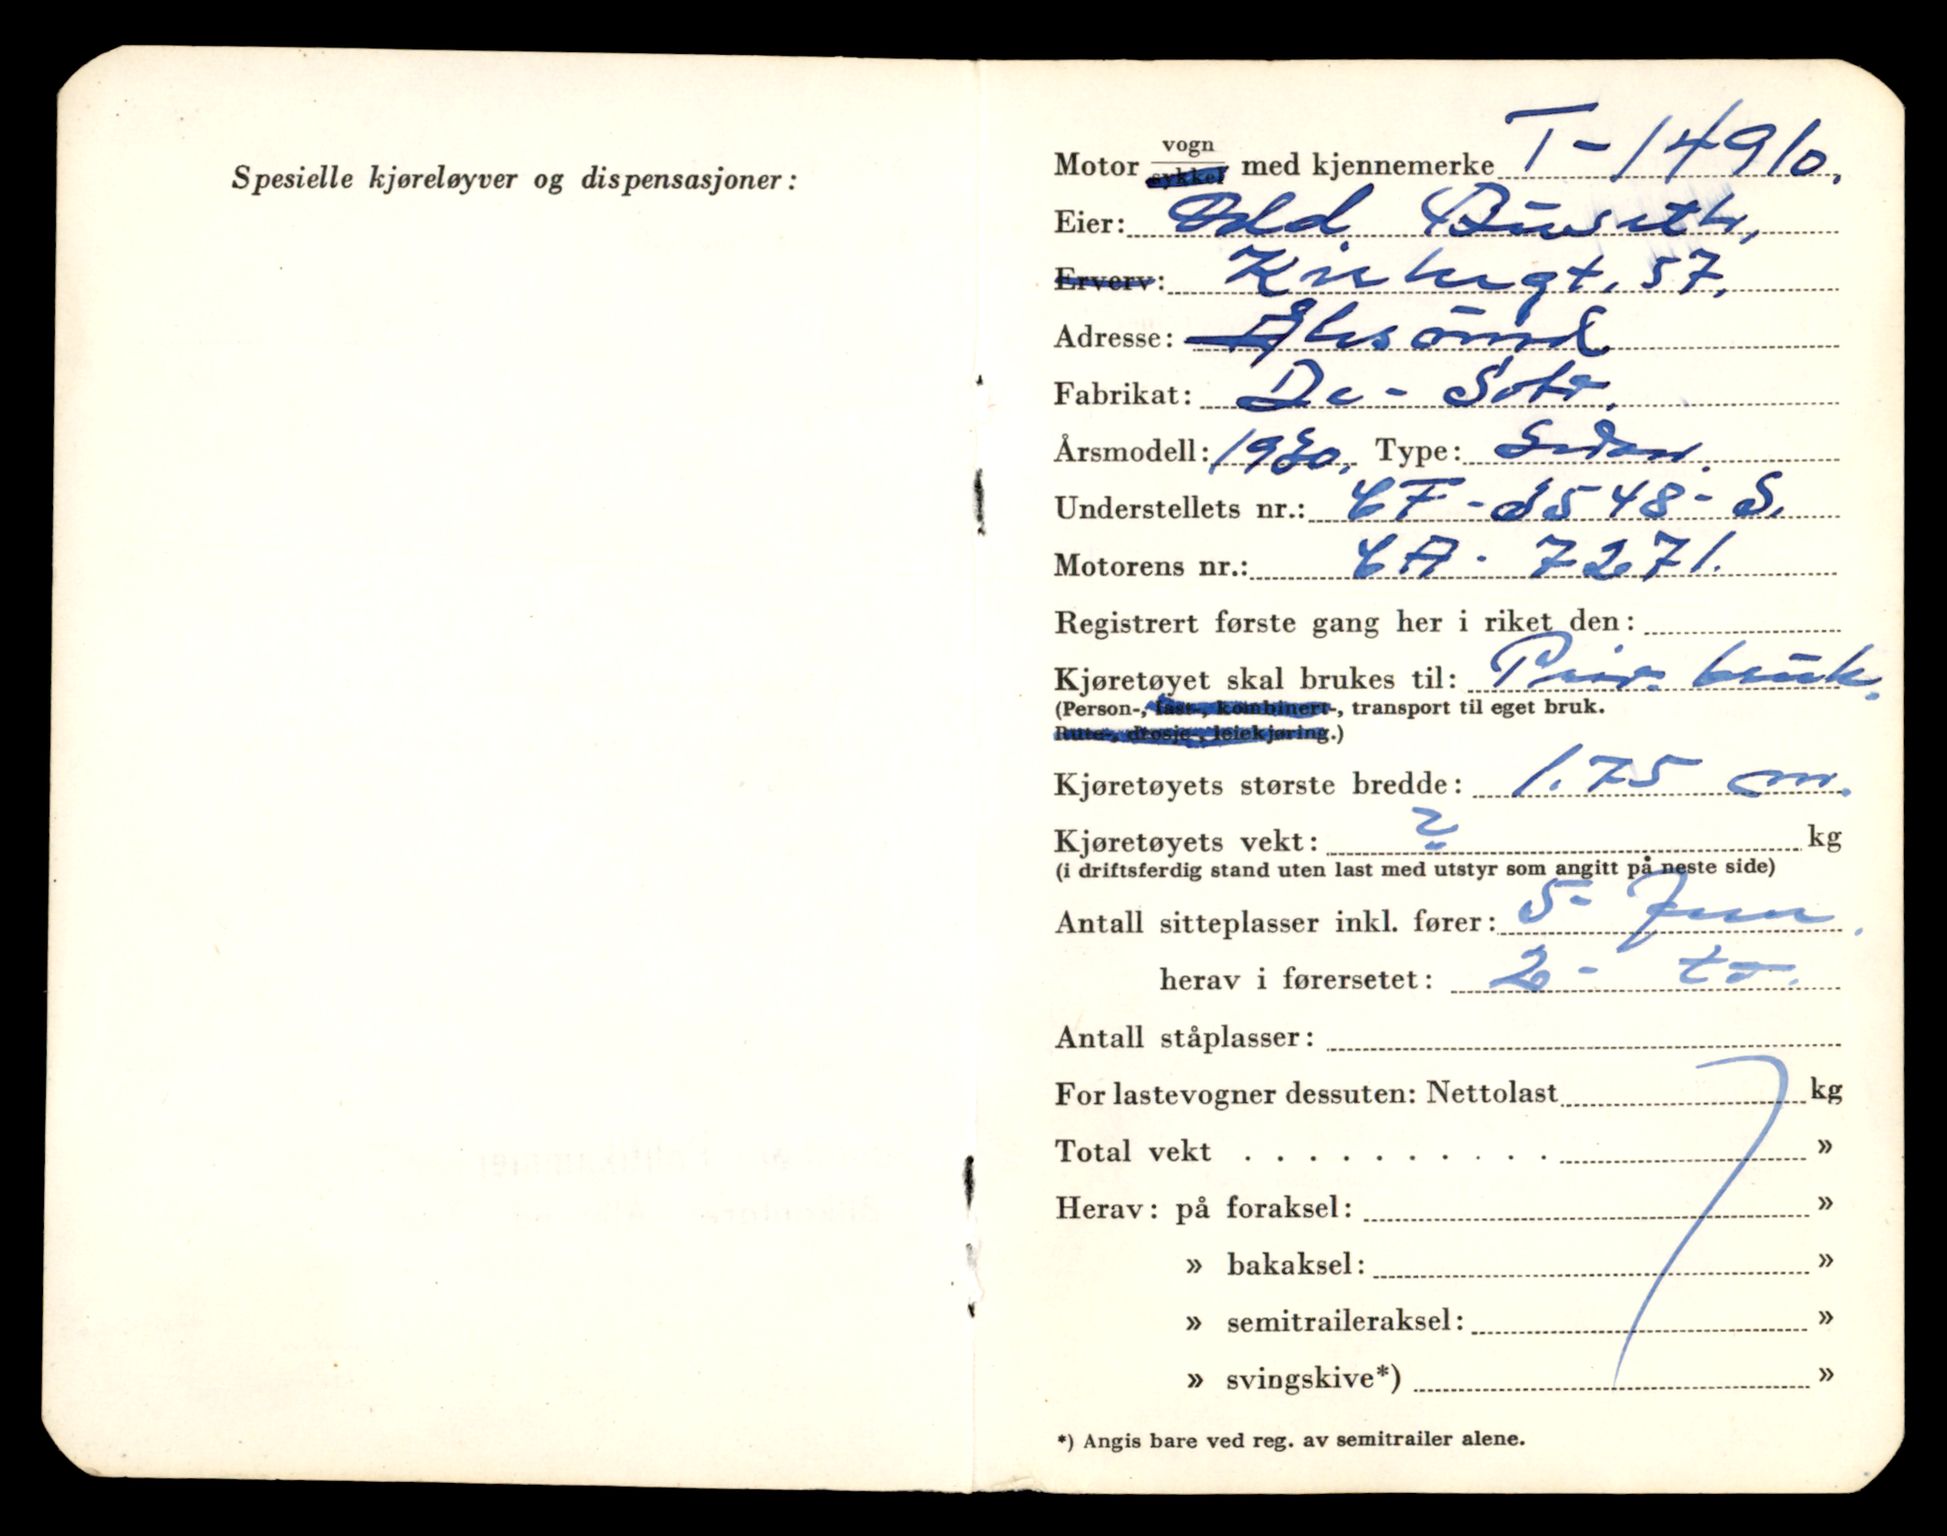 Spesielle kjøreløyver og dispensasjoner:
Motor vogn sykkel med kjennemerke T-14910.
Eier: Odd
Erverv: Kirkegt. 57.
Adresse: Ålesund
Fabrikat: De-Soto.
Årsmodell: 1930. Type: Sedan.
Understellets nr.: CF-3548-S.
Motorens nr.: CA-7271.
Registrert første gang her i riket den:
Kjøretøyet skal brukes til: Priv. bruk.
(Person-, last-, kombinert-, transport til eget bruk.
Rute-, drosje-, leiekjøring.)
Kjøretøyets største bredde: 1.75 cm.
Kjøretøyets vekt: ? kg
(i driftsferdig stand uten last med utstyr som angitt på neste side)
Antall sitteplasser inkl. fører: 5- fem.
herav i førersetet: 2- to.
Antall ståplasser:
For lastevogner dessuten: Nettolast kg
Total vekt . . . . . . . . . . »
Herav: på foraksel: »
» bakaksel: »
» semitraileraksel: »
» svingskive*) »
*) Angis bare ved reg. av semitrailer alene.